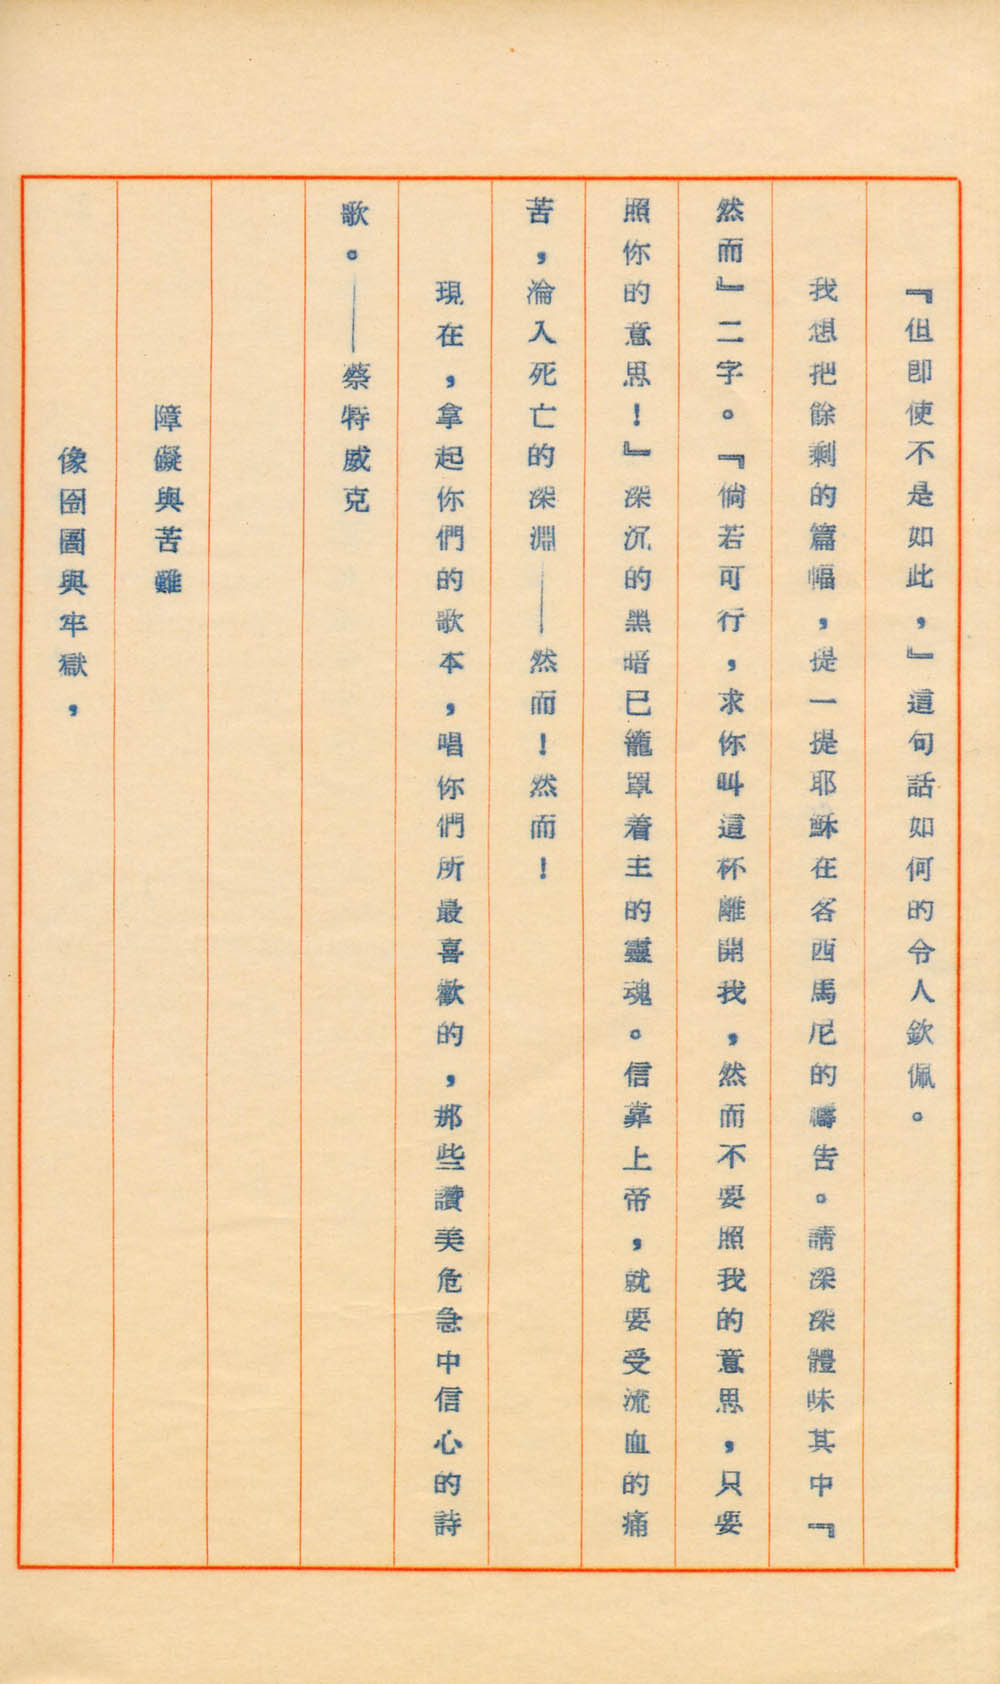 『但即使不是如此，』這句話如何的令人欽佩。
我想把餘剩的篇幅，提一提耶穌在客西馬尼的禱告。請深深體味其中『
然而』二字。『倘若可行，求你叫這杯離開我，然而不要照我的意思，只要
照你的意思！』深沉的黑暗已籠罩着主的靈魂。信靠上帝，就要受流血的痛
苦，淪入死亡的深淵——然而！然而！
現在，拿起你們的歌本，唱你們所最喜歡的，那些讚美危急中信心的詩
歌。——蔡特威克
障礙與苦難
像囹圄與牢獄，